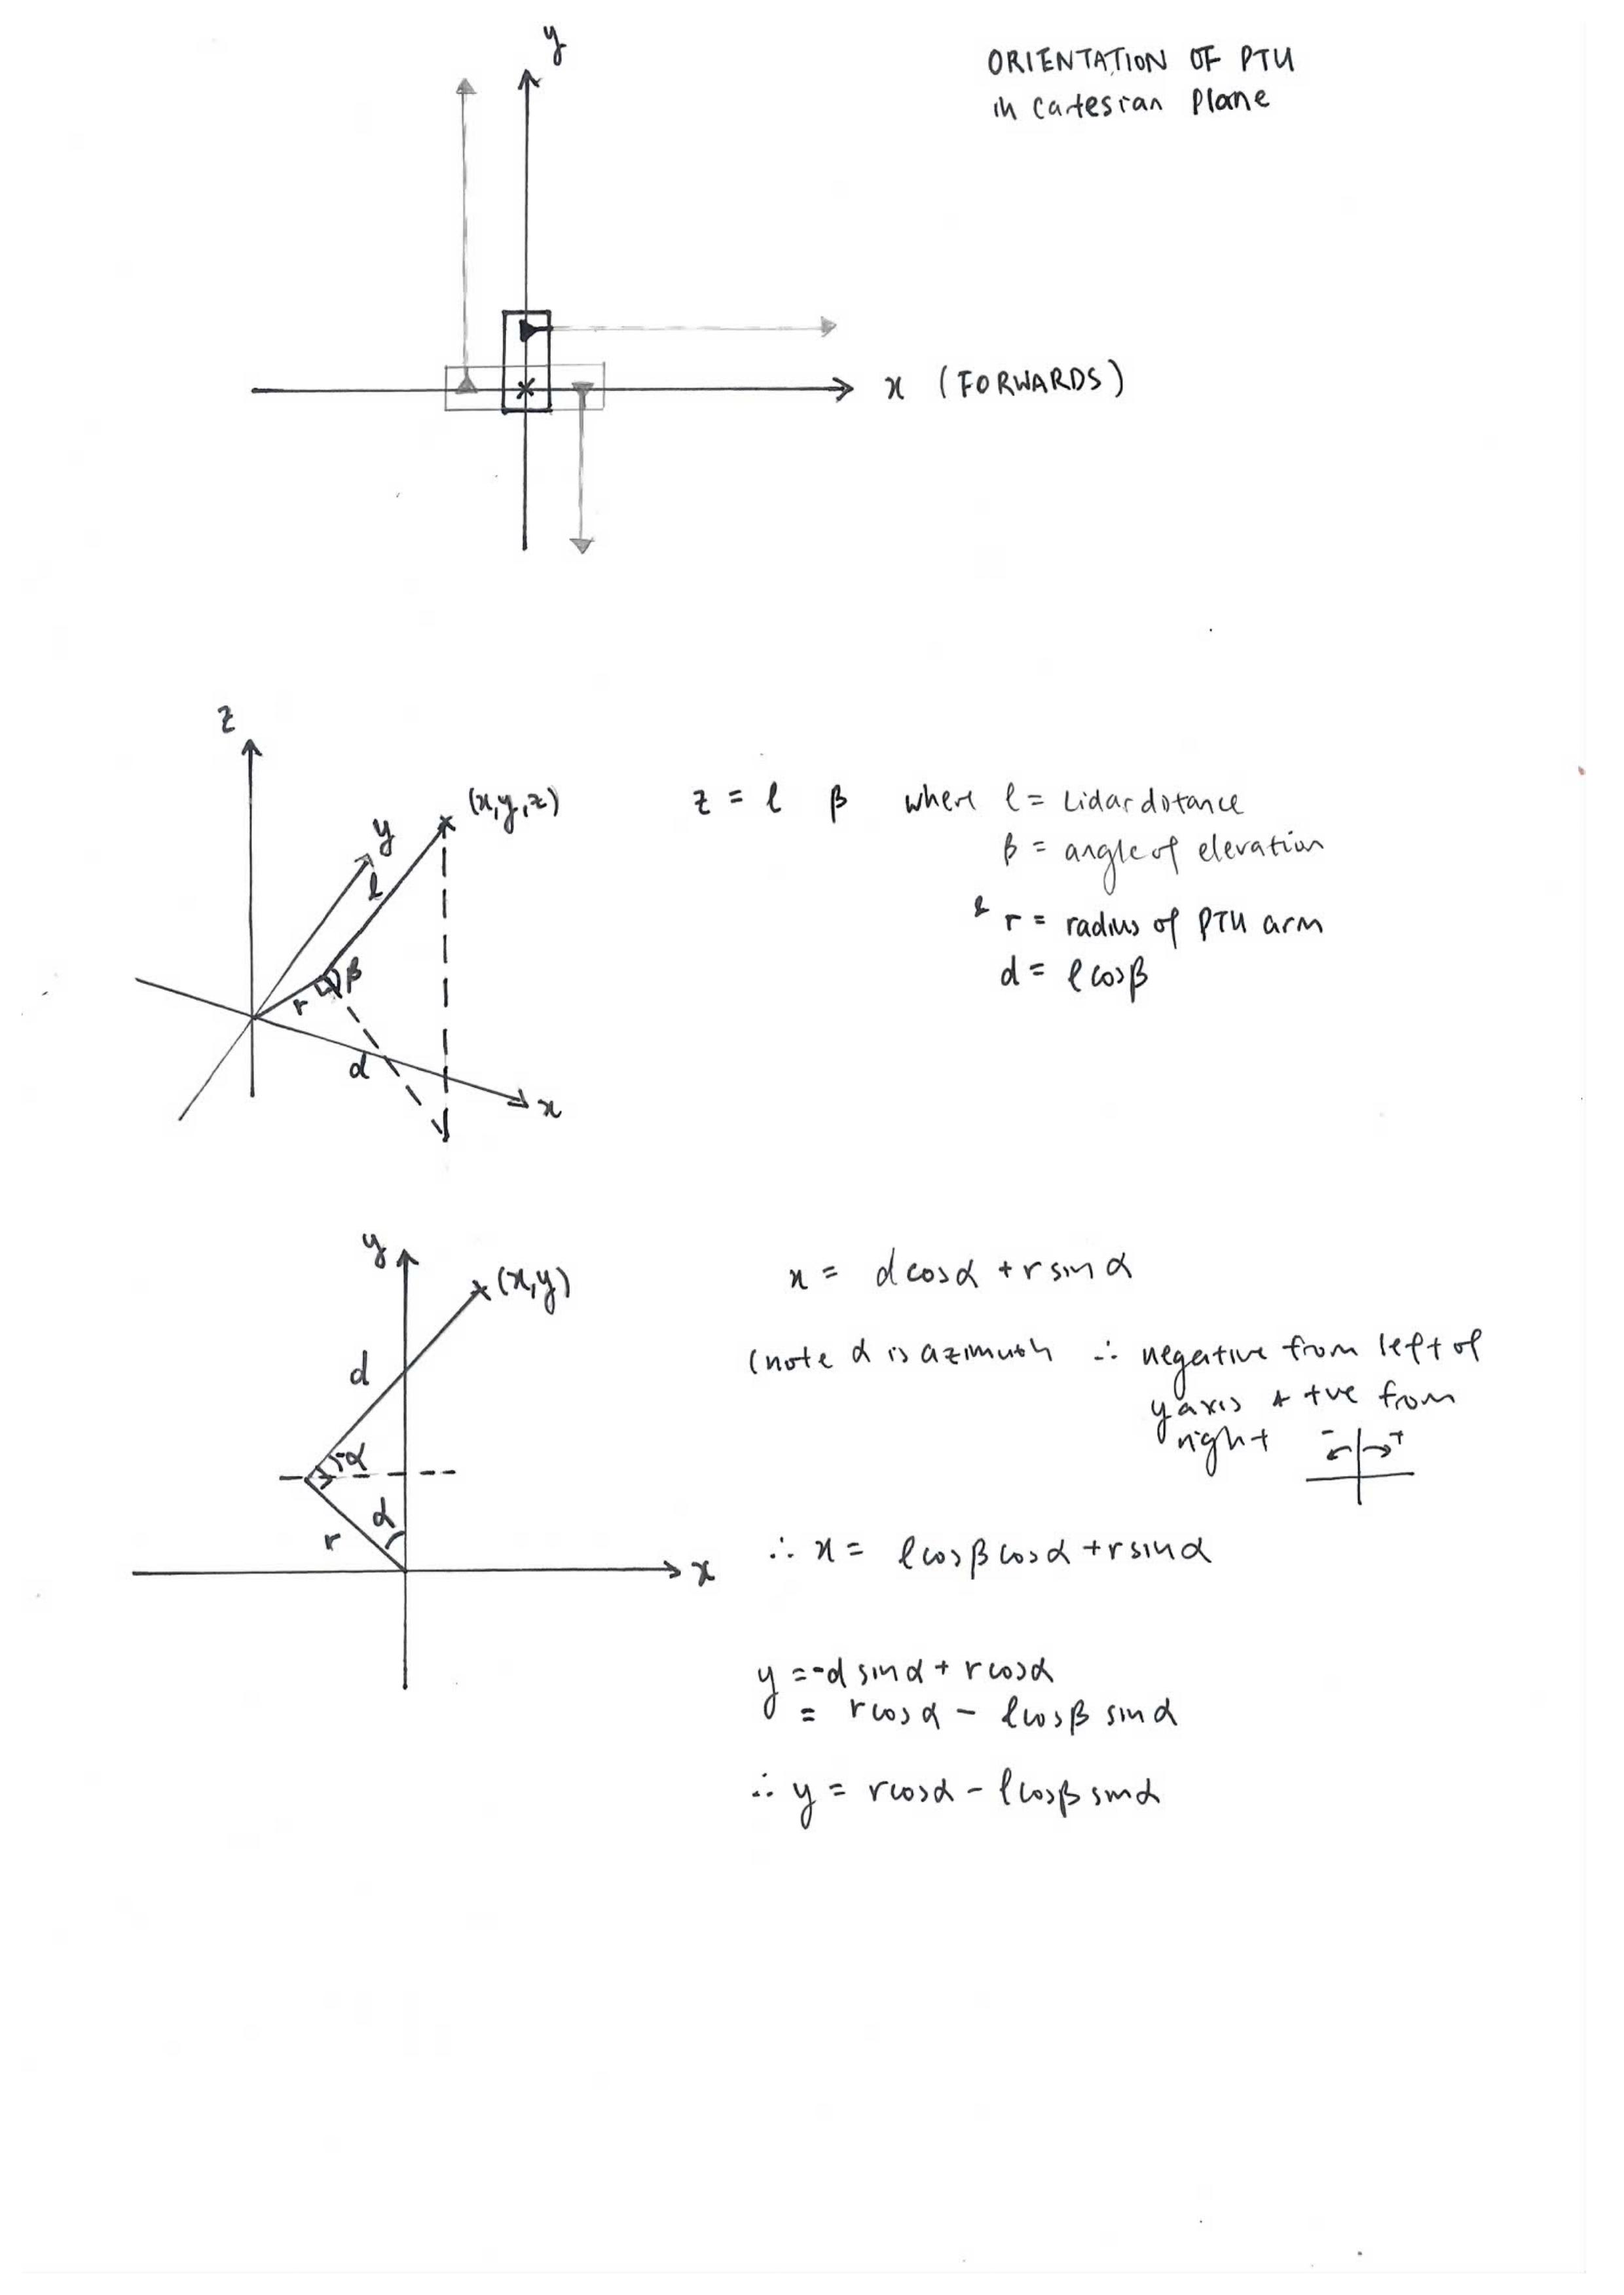 y
ORIENTATION OF PTU
in Cartesian Plane
x (FORWARDS)
z
y
(x,y,z)
l
β
r
d
x
z = l β where l = Lidar distance
β = angle of elevation
& r = radius of PTU arm
d = l cosβ
y
(x,y)
d
-α
α
r
x
x = d cosα + r sin α
(note α is azimuth ∴ negative from left of
y axis & +ve from
right
- +
∴ x = l cosβ cosα + r sinα
y = -d sinα + r cosα
= r cosα - l cosβ sinα
∴ y = r cosα - l cosβ sinα